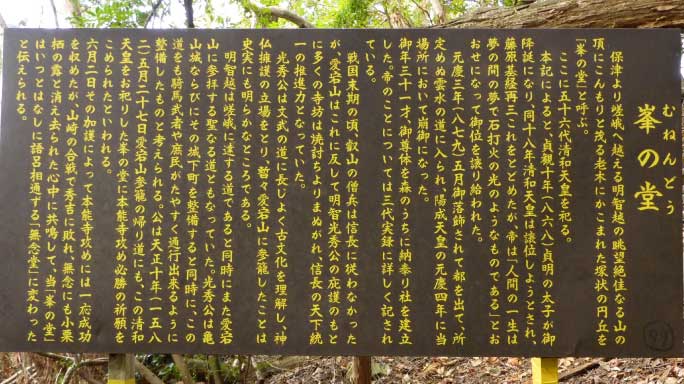 むねんどう
峯の堂
保津より嵯峨へ越える明智越の眺望絶佳なる山の
頂にこんもりと茂る老木にかこまれた塚状の円丘を
「峯の堂」と呼ぶ。
ここに五十六代清和天皇を祀る。
本記によると、貞観十年(八六八)貞明の太子が御
降誕になり、同十八年清和天皇は譲位しようとされ、
藤原基経再三これをとどめたが、帝は「人間の一生は
夢の間の夢で石打火の光のようなものである」とお
おせになって御位を譲り給われた。
元慶三年(八七九)五月御落飾されて都を出て、所
定めぬ雲水の道に入られ、陽成天皇の元慶四年に当
場所において崩御になった。
御年三十一才、御尊体を森のうちに納奉り社を建立
した。帝のことについては三代実録に詳しく記され
ている。
戦国末期の頃、叡山の僧兵は信長に従わなかった
が、愛宕山はこれに反して明智光秀公の庇護のもと
に多くの寺坊は焼討ちよりまぬがれ、信長の天下統
一の推進力となっていった。
光秀公は文武の道に長じよく古文化を理解し、神
仏擁護の立場をとり、暫々愛宕山に参籠したことは
史実にも明らかなところである。
明智越は嵯峨に達する道であると同時にまた愛宕
山に参拝する聖なる道でもなっていた。光秀公は亀
山城ならびにその城下町を整備すると同時に、この
道をも騎馬武者や庶民がたやすく通行出来るように
整備したものと考えられる。公は天正十年(一五八
二)五月二十七日愛宕山参籠の帰り道にも、この清和
天皇をお祀りした峯の堂に本能寺攻め必勝の祈願を
こめられたといわれる。
六月二日その加護によって本能寺攻めには一応成功
を収めたが、山崎の合戦で秀吉に敗れ、無念にも小栗
栖の露と消え去られた心中に共鳴して、当「峯の堂」
はいつとはなしに語呂相通ずる「無念堂」に変わった
と伝えられる。